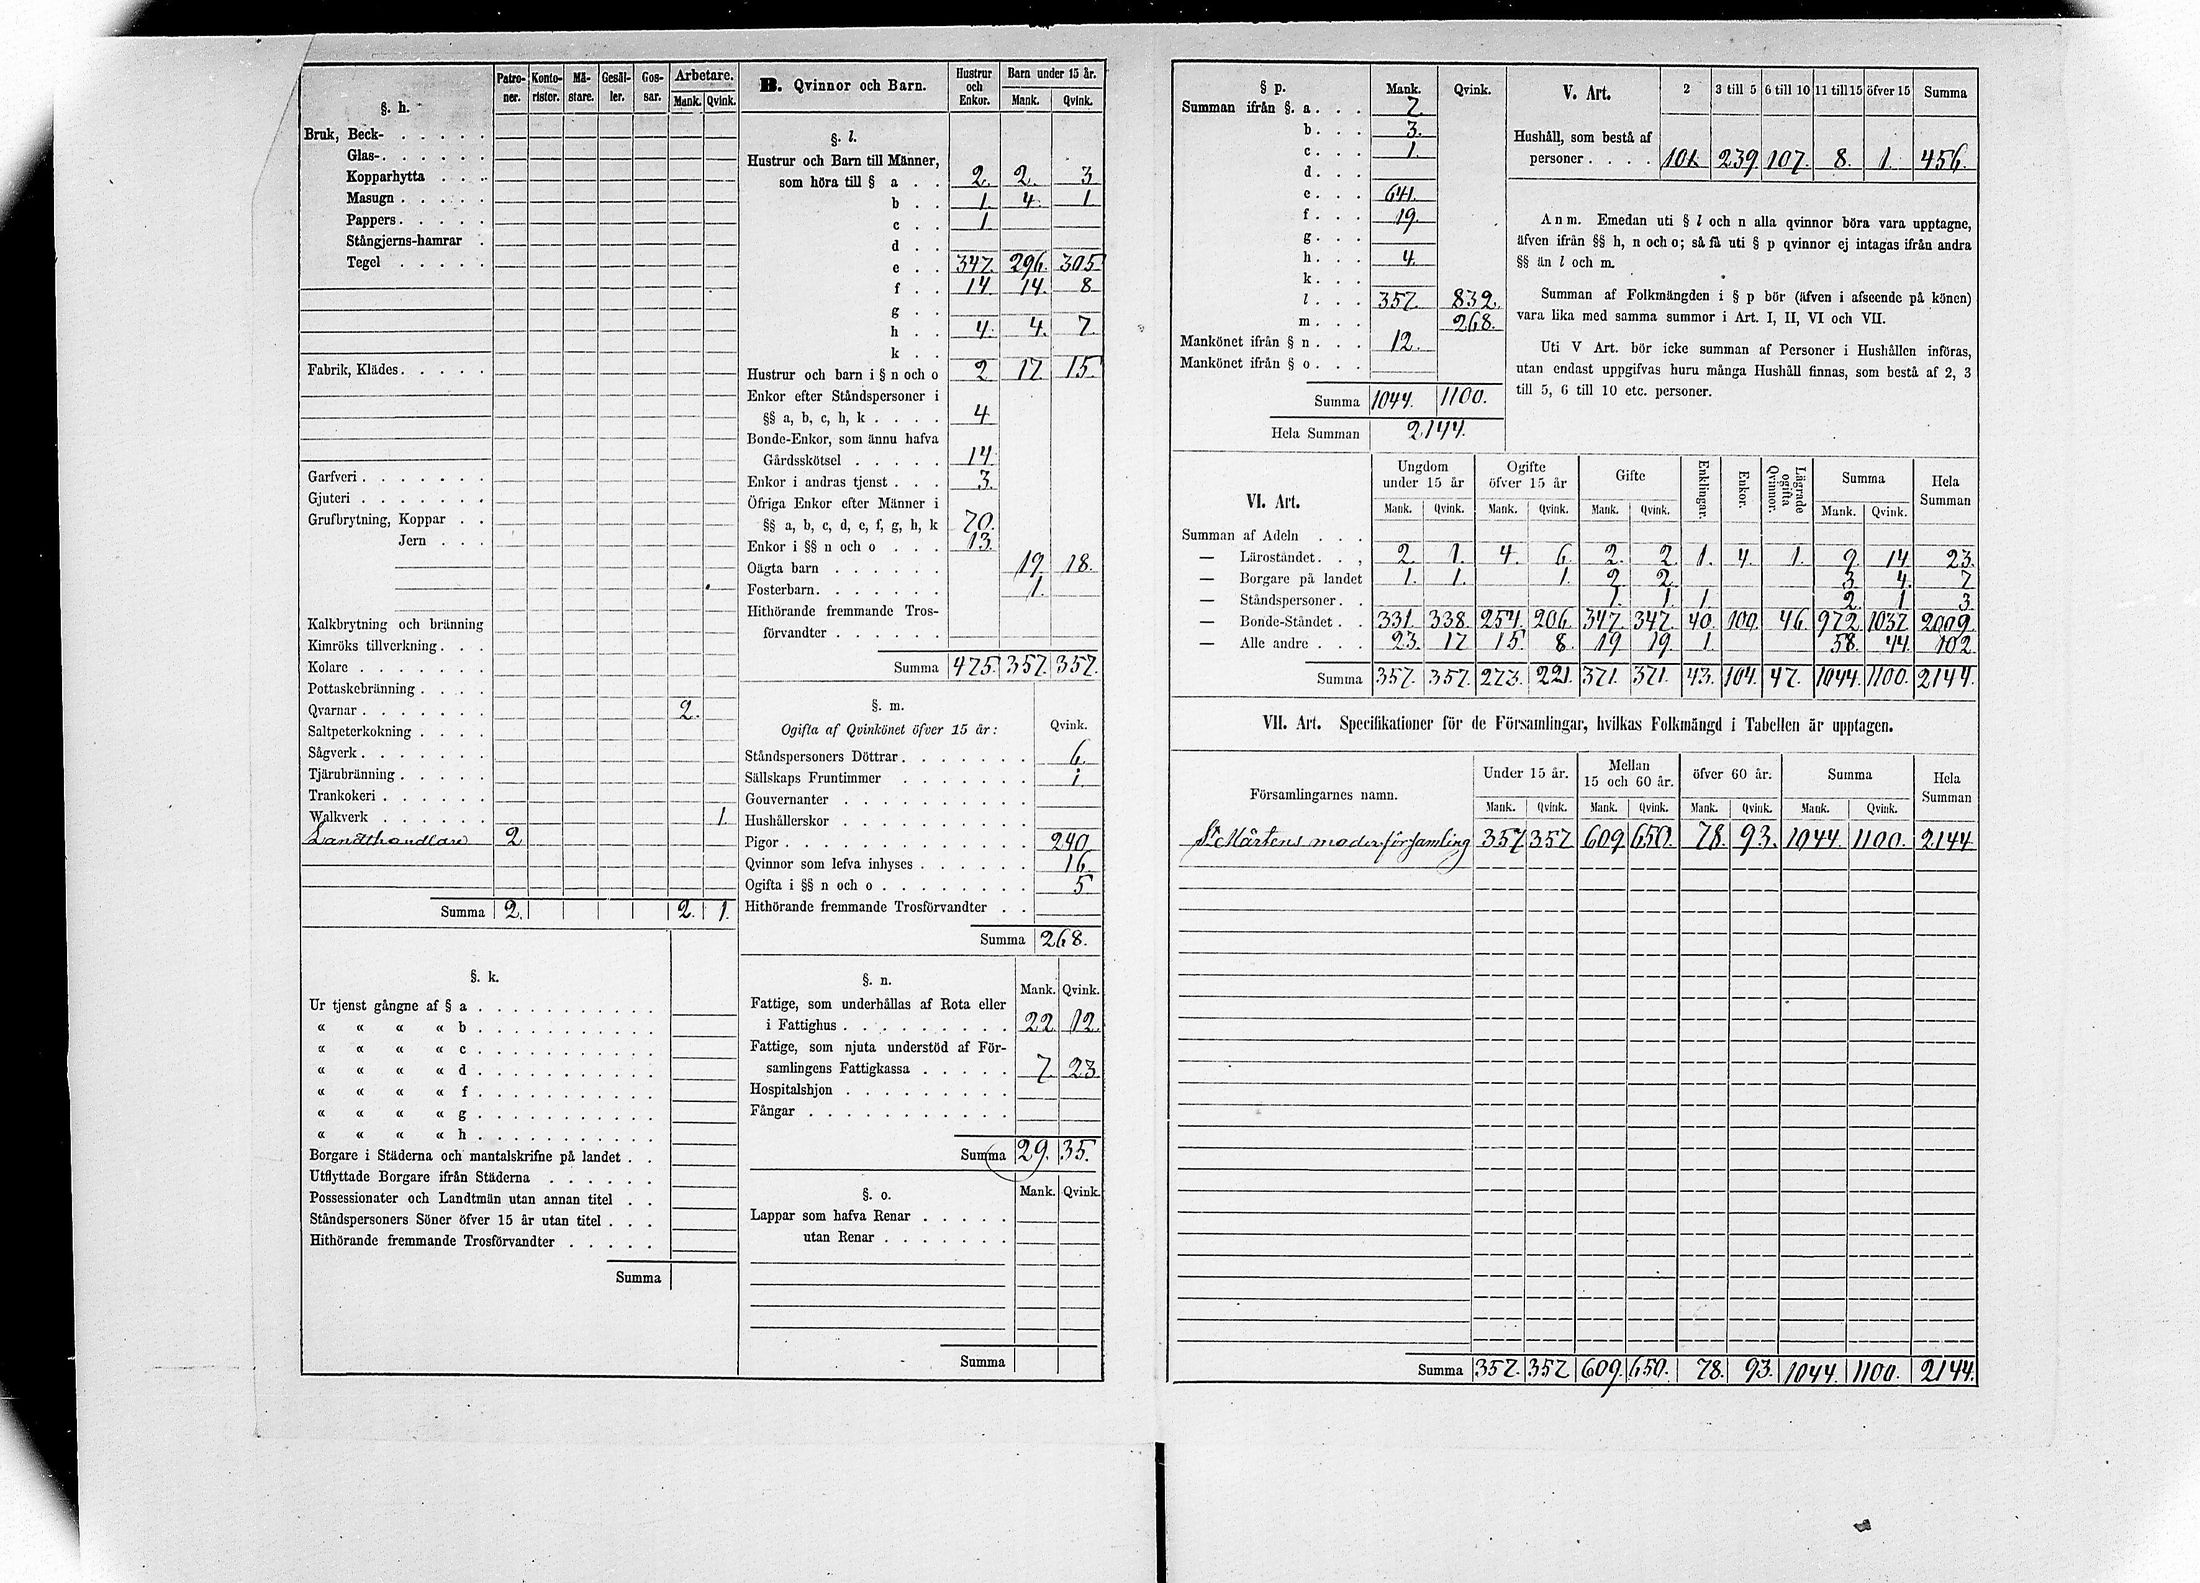 §. h. Patro-ner. Konto-rister. Mä-stare. Gesäl-ler. Gos-sar. Arbetare. Mank. Qvink.
Bruk, Beck- . . . . .
Glas- . . . . . .
Kopparhytta . . .
Masugn . . . . .
Pappers . . . . .
Stångjerns-hamrar .
Tegel . . . . .
Fabrik, Klädes . . . . .
Garfveri . . . . . . .
Gjuteri . . . . . . .
Grufbrytning, Koppar . .
Jern . . .
Kalkbrytning och bränning
Kimröks tillverkning . . .
Kolare . . . . . . .
Pottaskebränning . . . .
Qvarnar . . . . . . . 2.
Saltpeterkokning . . . .
Sågverk . . . . . . .
Tjärubränning . . . . .
Trankokeri . . . . . .
Walkverk . . . . . . 1.
Landthandlare 2
Summa 2. 2. 1.
§. k.
Ur tjenst gångne af § a . . . . . . . . . . .
« « « « b . . . . . . . . . . .
« « « « c . . . . . . . . . . .
« « « « d . . . . . . . . . . .
« « « « f . . . . . . . . . . .
« « « « g . . . . . . . . . . .
« « « « h . . . . . . . . . . .
Borgare i Städerna och mantalskrifne på landet . .
Utflyttade Borgare ifrån Städerna . . . . . .
Possessionater och Landtmän utan annan titel . .
Ståndspersoners Söner öfver 15 år utan titel . . .
Hithörande fremmande Trosförvandter . . . . .
Summa
B. Qvinnor och Barn. Hustrur och Enkor. Barn under 15 år. Mank. Qvink.
§. l.
Hustrur och Barn till Männer,
som höra till § a . . 2. 2. 3
b . . 1. 4. 1
c . . 1.
d . .
e . . 347. 296. 305
f . . 14 14. 8
g . .
h . . 4. 4. 7.
k . .
Hustrur och barn i § n och o 2 17 15.
Enkor efter Ståndspersoner i
§§ a, b, c, h, k . . . . 4
Bonde-Enkor, som ännu hafva
Gårdsskötsel . . . . . 14
Enkor i andras tjenst . . . 3.
Öfriga Enkor efter Männer i
§§ a, b, c, d, e, f, g, h, k 70.
Enkor i §§ n och o . . . 13.
Oägta barn . . . . . . 19. 18.
Fosterbarn . . . . . . . 1.
Hithörande fremmande Tros-
förvandter . . . . . .
Summa 475. 357. 357.
§. m.
Ogifta af Qvinkönet öfver 15 år: Qvink.
Ståndspersoners Döttrar . . . . . . . 6.
Sällskaps Fruntimmer . . . . . . . 1.
Gouvernanter . . . . . . . . . .
Hushållerskor . . . . . . . . . .
Pigor . . . . . . . . . . . . . 240
Qvinnor som lefva inhyses . . . . . . 16.
Ogifta i §§ n och o . . . . . . . . 5
Hithörande fremmande Trosförvandter . .
Summa 268.
§. n. Mank. Qvink.
Fattige, som underhållas af Rota eller
i Fattighus . . . . . . . . . 22 12.
Fattige, som njuta understöd af För-
samlingens Fattigkassa . . . . . 7 23
Hospitalshjon . . . . . . . . . .
Fångar . . . . . . . . . . . .
Summa 29. 35.
§. o. Mank. Qvink.
Lappar som hafva Renar . . . . .
utan Renar . . . . . . .
Summa
§ p. Mank. Qvink.
Summan ifrån §. a . . . 7.
b . . . 3.
c . . . 1.
d . . .
e . . . 641.
f . . . 19.
g . . .
h . . . 4.
k . . .
l . . . 357. 832.
m . . . 268.
Mankönet ifrån § n . . . 12.
Mankönet ifrån § o . . .
Summa 1044. 1100.
Hela Summan 2144.
V. Art. 2 3 till 5 6 till 10 11 till 15 öfver 15 Summa
Hushåll, som bestå af
personer . . . . 101. 239 107. 8. 1. 456.
Anm. Emedan uti § l och n alla qvinnor böra vara upptagne,
äfven ifrån §§ h, n och o; så få uti § p qvinnor ej intagas ifrån andra
§§ än l och m.
Summan af Folkmängden i § p bör (äfven i afseende på könen)
vara lika med samma summor i Art. I, II, VI och VII.
Uti V Art. bör icke summan af Personer i Hushållen införas,
utan endast uppgifvas huru många Hushåll finnas, som bestå af 2, 3
till 5, 6 till 10 etc. personer.
VI. Art. Ungdom under 15 år Ogifte öfver 15 år Gifte Enklingar. Enkor. Lägrade ogifta Qvinnor. Summa Hela Summan
Mank. Qvink. Mank. Qvink. Mank. Qvink. Mank. Qvink.
Summan af Adeln . . .
— Läroståndet . . , 2. 1. 4. 6. 2. 2. 1. 4. 1. 9. 14 23.
— Borgare på landet 1. 1. 1. 2 2. 3 4. 7
— Ståndspersoner . . 1. 1. 1. 2. 1 3
— Bonde-Ståndet . . 331. 338. 254. 206. 347. 347. 40. 100. 46. 972. 1037 2009.
— Alle andre . . . 23. 17 15. 8. 19 19. 1. 58. 44. 102
Summa 357. 357. 273. 221. 371. 371. 43. 104. 47. 1044. 1100. 2144.
VII. Art. Specifikationer för de Församlingar, hvilkas Folkmängd i Tabellen är upptagen.
Församlingarnes namn. Under 15 år. Mellan 15 och 60 år. öfver 60 år. Summa Hela Summan
Mank. Qvink. Mank. Qvink. Mank. Qvink. Mank. Qvink.
St Mårtens moderförsamling 357 357 609 650. 78. 93. 1044 1100. 2144
Summa 357. 357 609. 650. 78. 93. 1044. 1100. 2144.